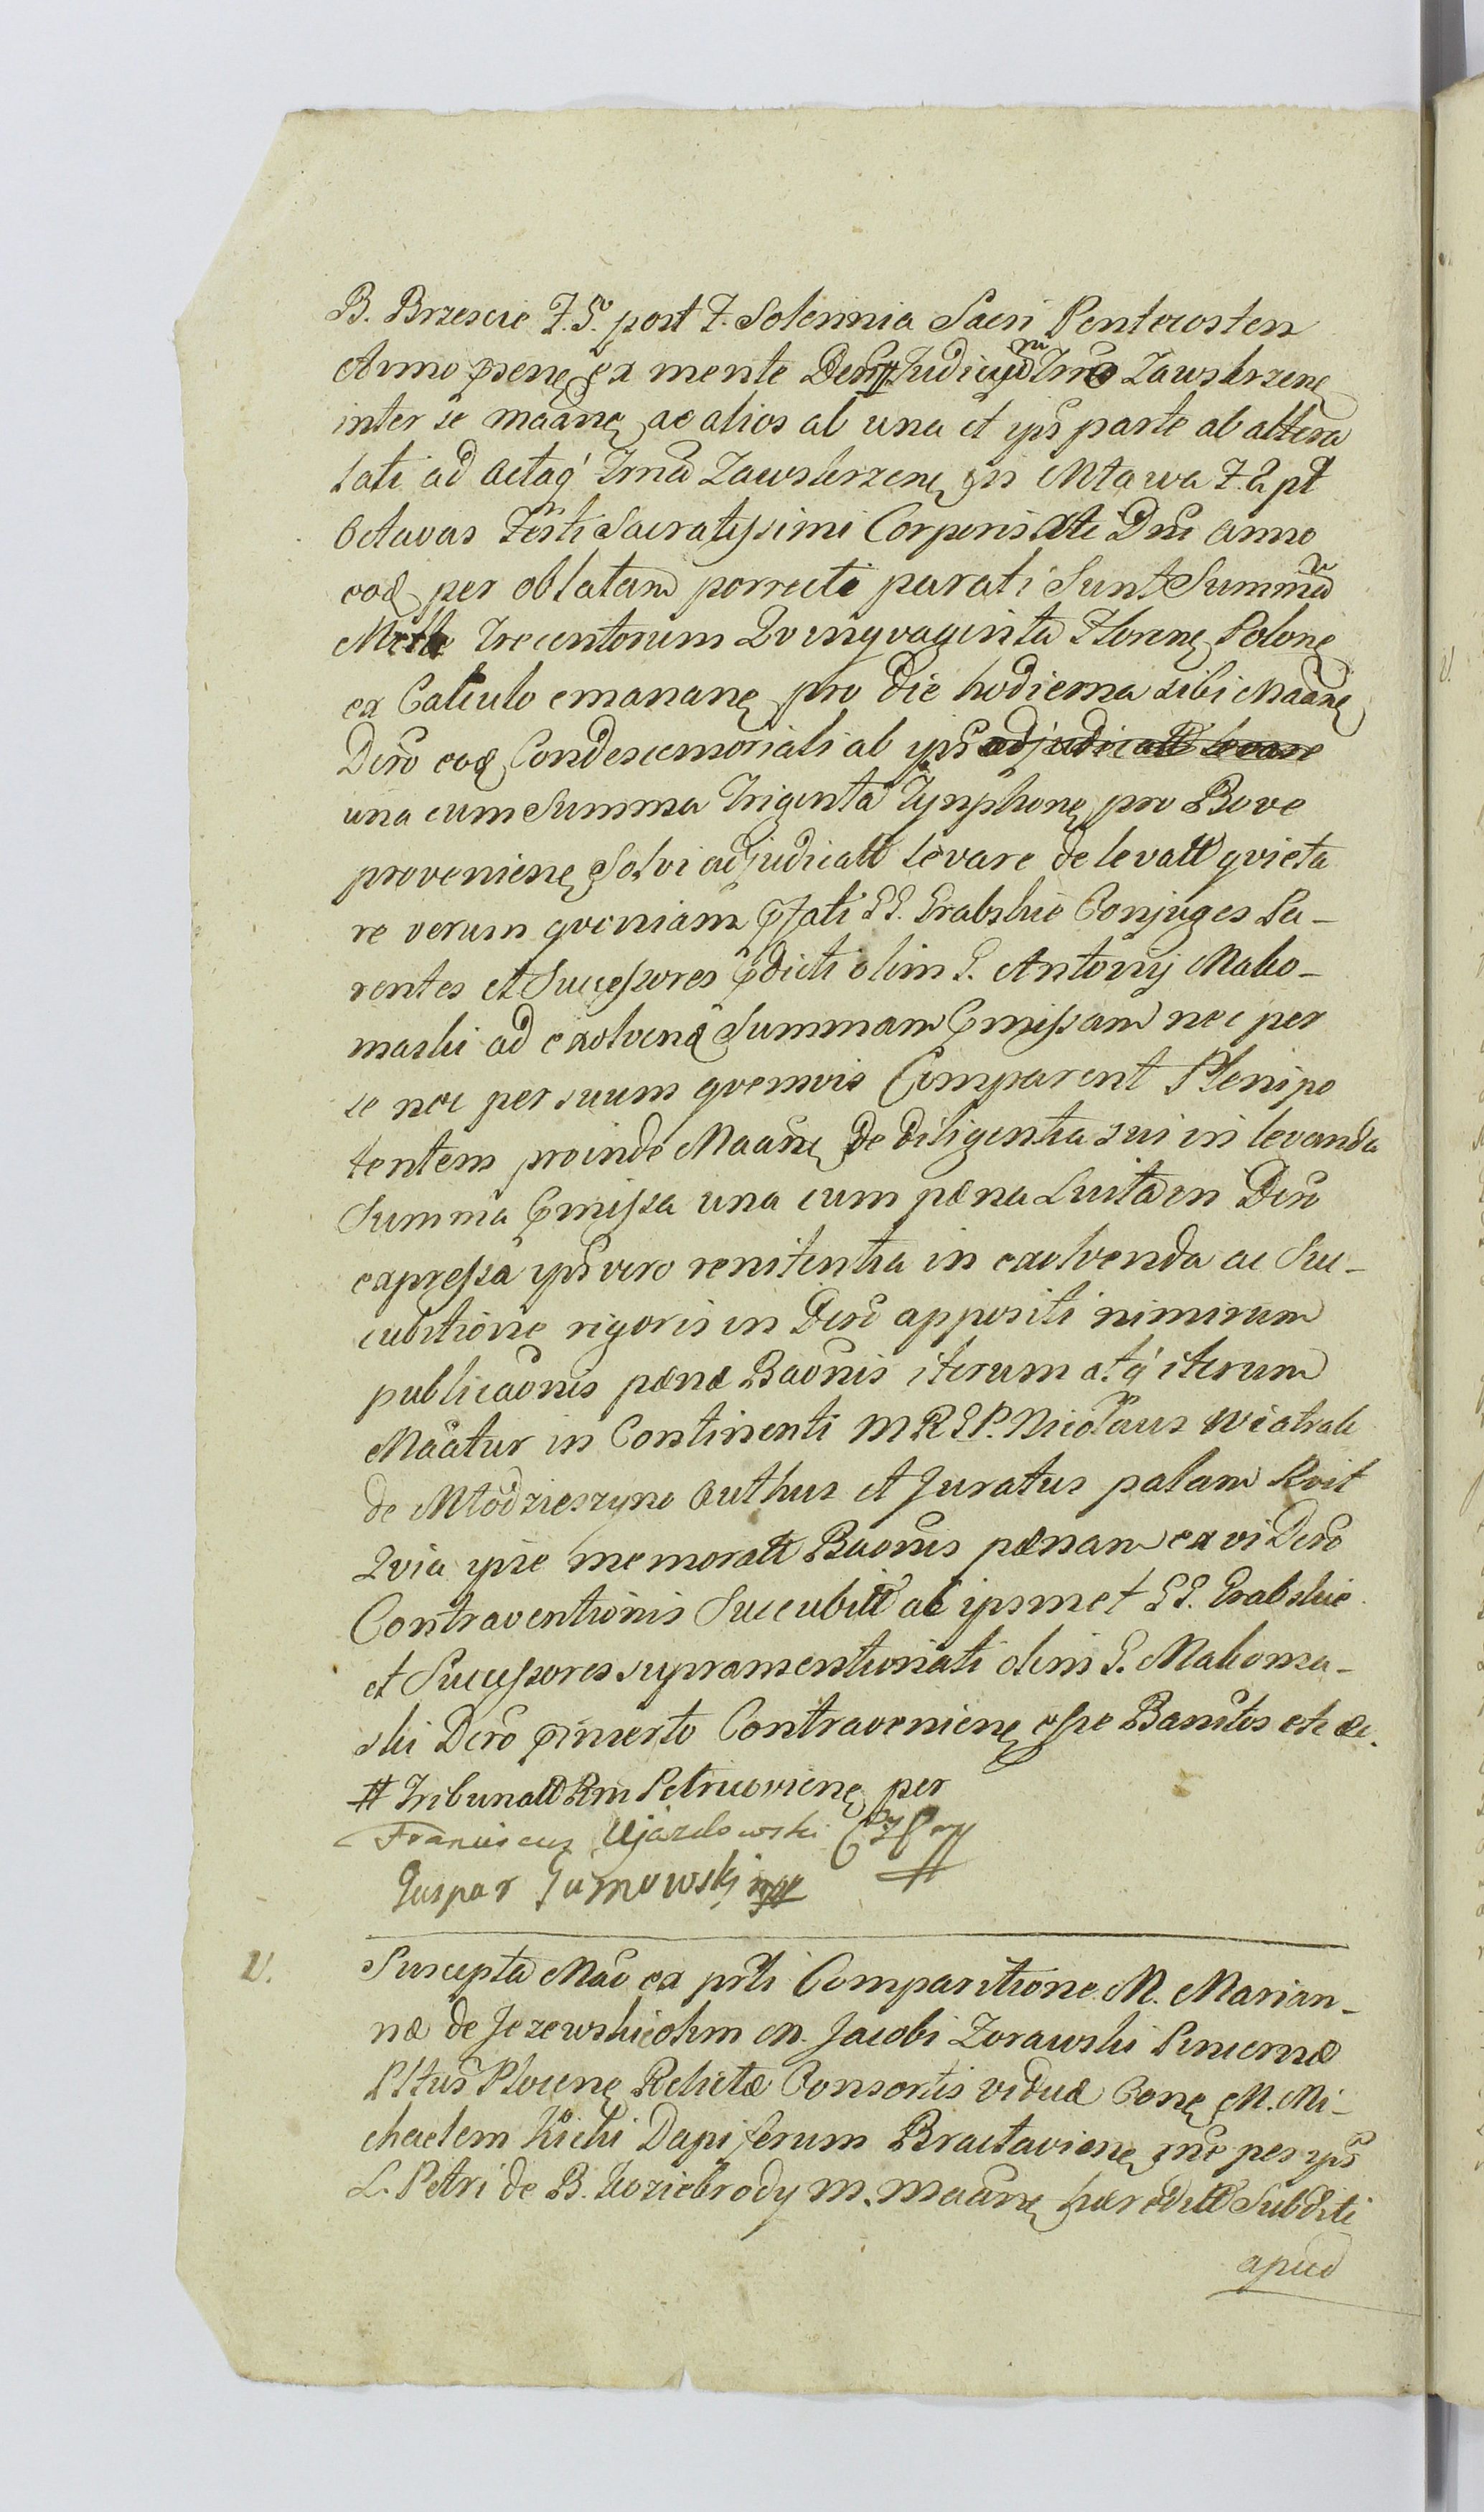 B. Brzescie F. 5. post F. Solennia Sacri Pentecosten
Anno præsenē ex mente Decr. Judiciyd Trrō Zawskrzenē
inter se maānē ac alios ab una et ips parte ab altera
lati ad Actaq Trrnā Zawskrzenē in Mława F. 2 pt
Octavas Festi Sacratissimi Corporis Xti Dni anno
eod per oblatam porrecti parati sunt Summā
Mille Trecentorum Qvinqvaginta Florenē Polonē
ex Calculo emananē pro die hodierna sibi Maānē
Decro eod Condescensoriali ab ips adjudicatt levare
una cum Summa Triginta Tynphonē pro Bove
provenienē solvi adjudicatt levare de levatt qvieta
re verum qvoniam pfati GG. Grabskie Conjuges Pa-
rentes et Successores pdicti olim G. Antonij Mako-
maski ad exolvend Summam pmissam nec per
se nec per suum qvemvis Comparent Plenipo
tentem proinde Maānē de diligentia sui in levanda
Summa pmissa una cum pæna Luita in Decro
expressa ips vero renitentia in exolvenda ac Suc-
cubitione rigoris in Decro appositi nimirum
publicaōnis pænæ Baōnis iterum atq iterum
Maātur in Continenti MRGP. Nicolaus Wiatrak
de Młodzieszyno Authus et Juratus palam Rvit
Qvia ipse memoratt Baōnis pænam ex vi Decro
Contraventionis Succubitt ab ipsmet GG. Grabskie
et Successores supramentionati olim G. Makoma-
ski Decro pinserto Contravenienē esse Banitos etc &c.
# Tribunatt Rni Petricovienē per
Franciscus Ujazdowski
Gaspar Gumowski mpp
V. Suscepta Maō ex prti Comparitione M. Marian-
næ de Jezewskie olim M. Jacobi Zorawski Pincernæ
Pttus Plocenē Relictæ Consortis viduæ Conē M. Mi-
chaelem Kicki Dapiferum Bractavienē rnē per ips
L. Petri de B. Koziebrody M. Maānē hæreditt Subditi
apud